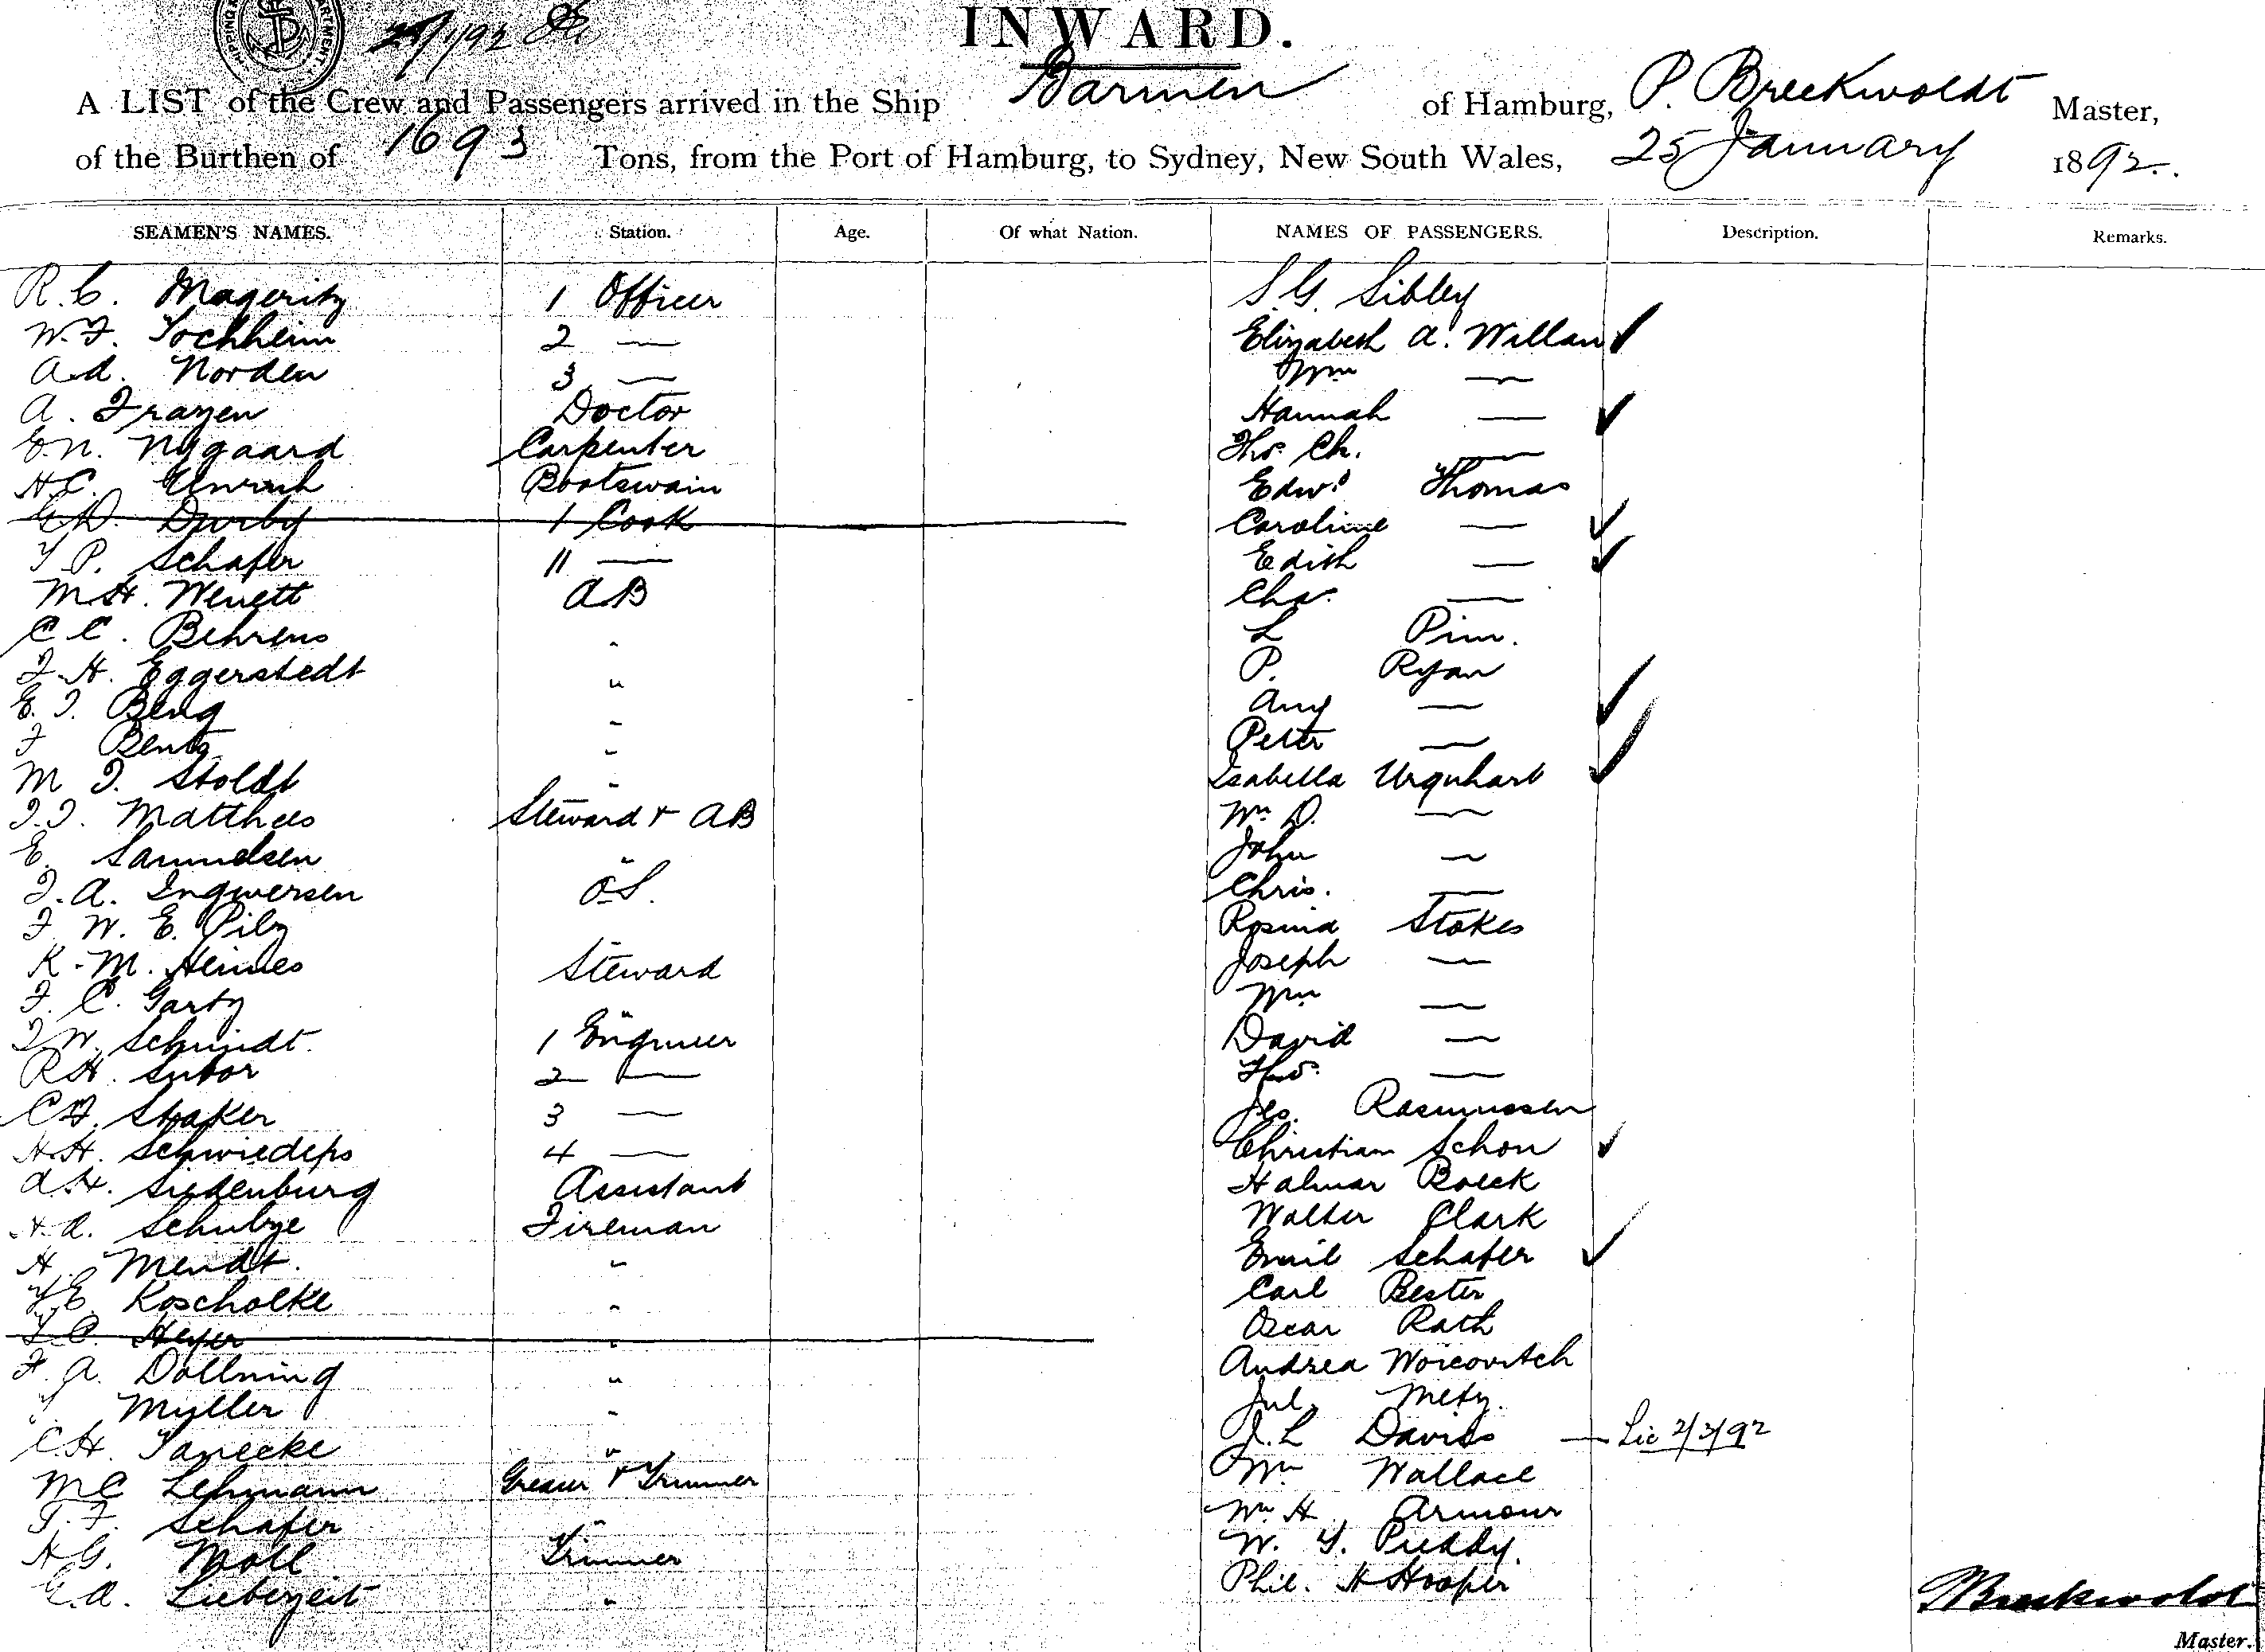 INWARD.
A LIST of the Crew and Passengers arrived in the Ship Barmen of Hamburg, P. Breckwoldt Master,
of the Burthen of 1693 Tons, from the Port of Hamburg, to Sydney, New South Wales, 25 January 1892.
SEAMEN'S NAMES. Station. Age. Of what Nation. NAMES OF PASSENGERS. Description. Remarks.
R.C. Mageritz 1 Officer S.G. Sibley
W.F. Jochheim 2 — Elizabeth A. Willan
A.d. Norden 3 — Wm —
A. Frazen Doctor Hannah —
E.N. Nygaard Carpenter Thos. Ch. —
H.C. Unruh Bootswain Edwd Thomas
Durby 1 Cook Caroline —
J P. Schafer 11 — Edith —
M.H. Wenett AB Chas. —
C C. Behrens " L Pim.
J.H. Eggerstedt " P. Ryan
E. J. Beng " Amy —
F Bentz " Peter —
M J. Stoldt " Isabella Urquhart
J.J. Matthees Steward + AB Wm D. —
E. Samuelsen " John —
J.A. Ingwersen O.S. Chris. —
F W. E. Pilz " Rosina Stokes
K.M. Heines Steward Joseph —
F. C. Garty " Wm —
J.W. Schmidt. 1 Engineer David —
R.H. Subor 2 — Thos. —
C.F. Straker 3 — Jes. Rasmussen
H.H. Schwiedeps 4 — Christian Schon
A.H. Siedenburg Assistant Halmar Boeck
H.A. Schulze Fireman Walter Clark
H. Mendt. " Emil Schafer
J.E. Koscholke " Carl Bester
Heyer " Oscar Rath
F. A. Dollning " Andrea Woicovitch
J. Myller " Jul. Metz.
C.H. Janecke " J.L Davies — Lic 2/3/92
M C Lehmann Greaser + Trimmer Wm Wallace
J.F. Schafer " Wm H Armour
H.G. Moll Trimmer W. J. Puddy.
E.A. Lieberzeit " Phil. H Hooper
PBreckwoldt
Master.